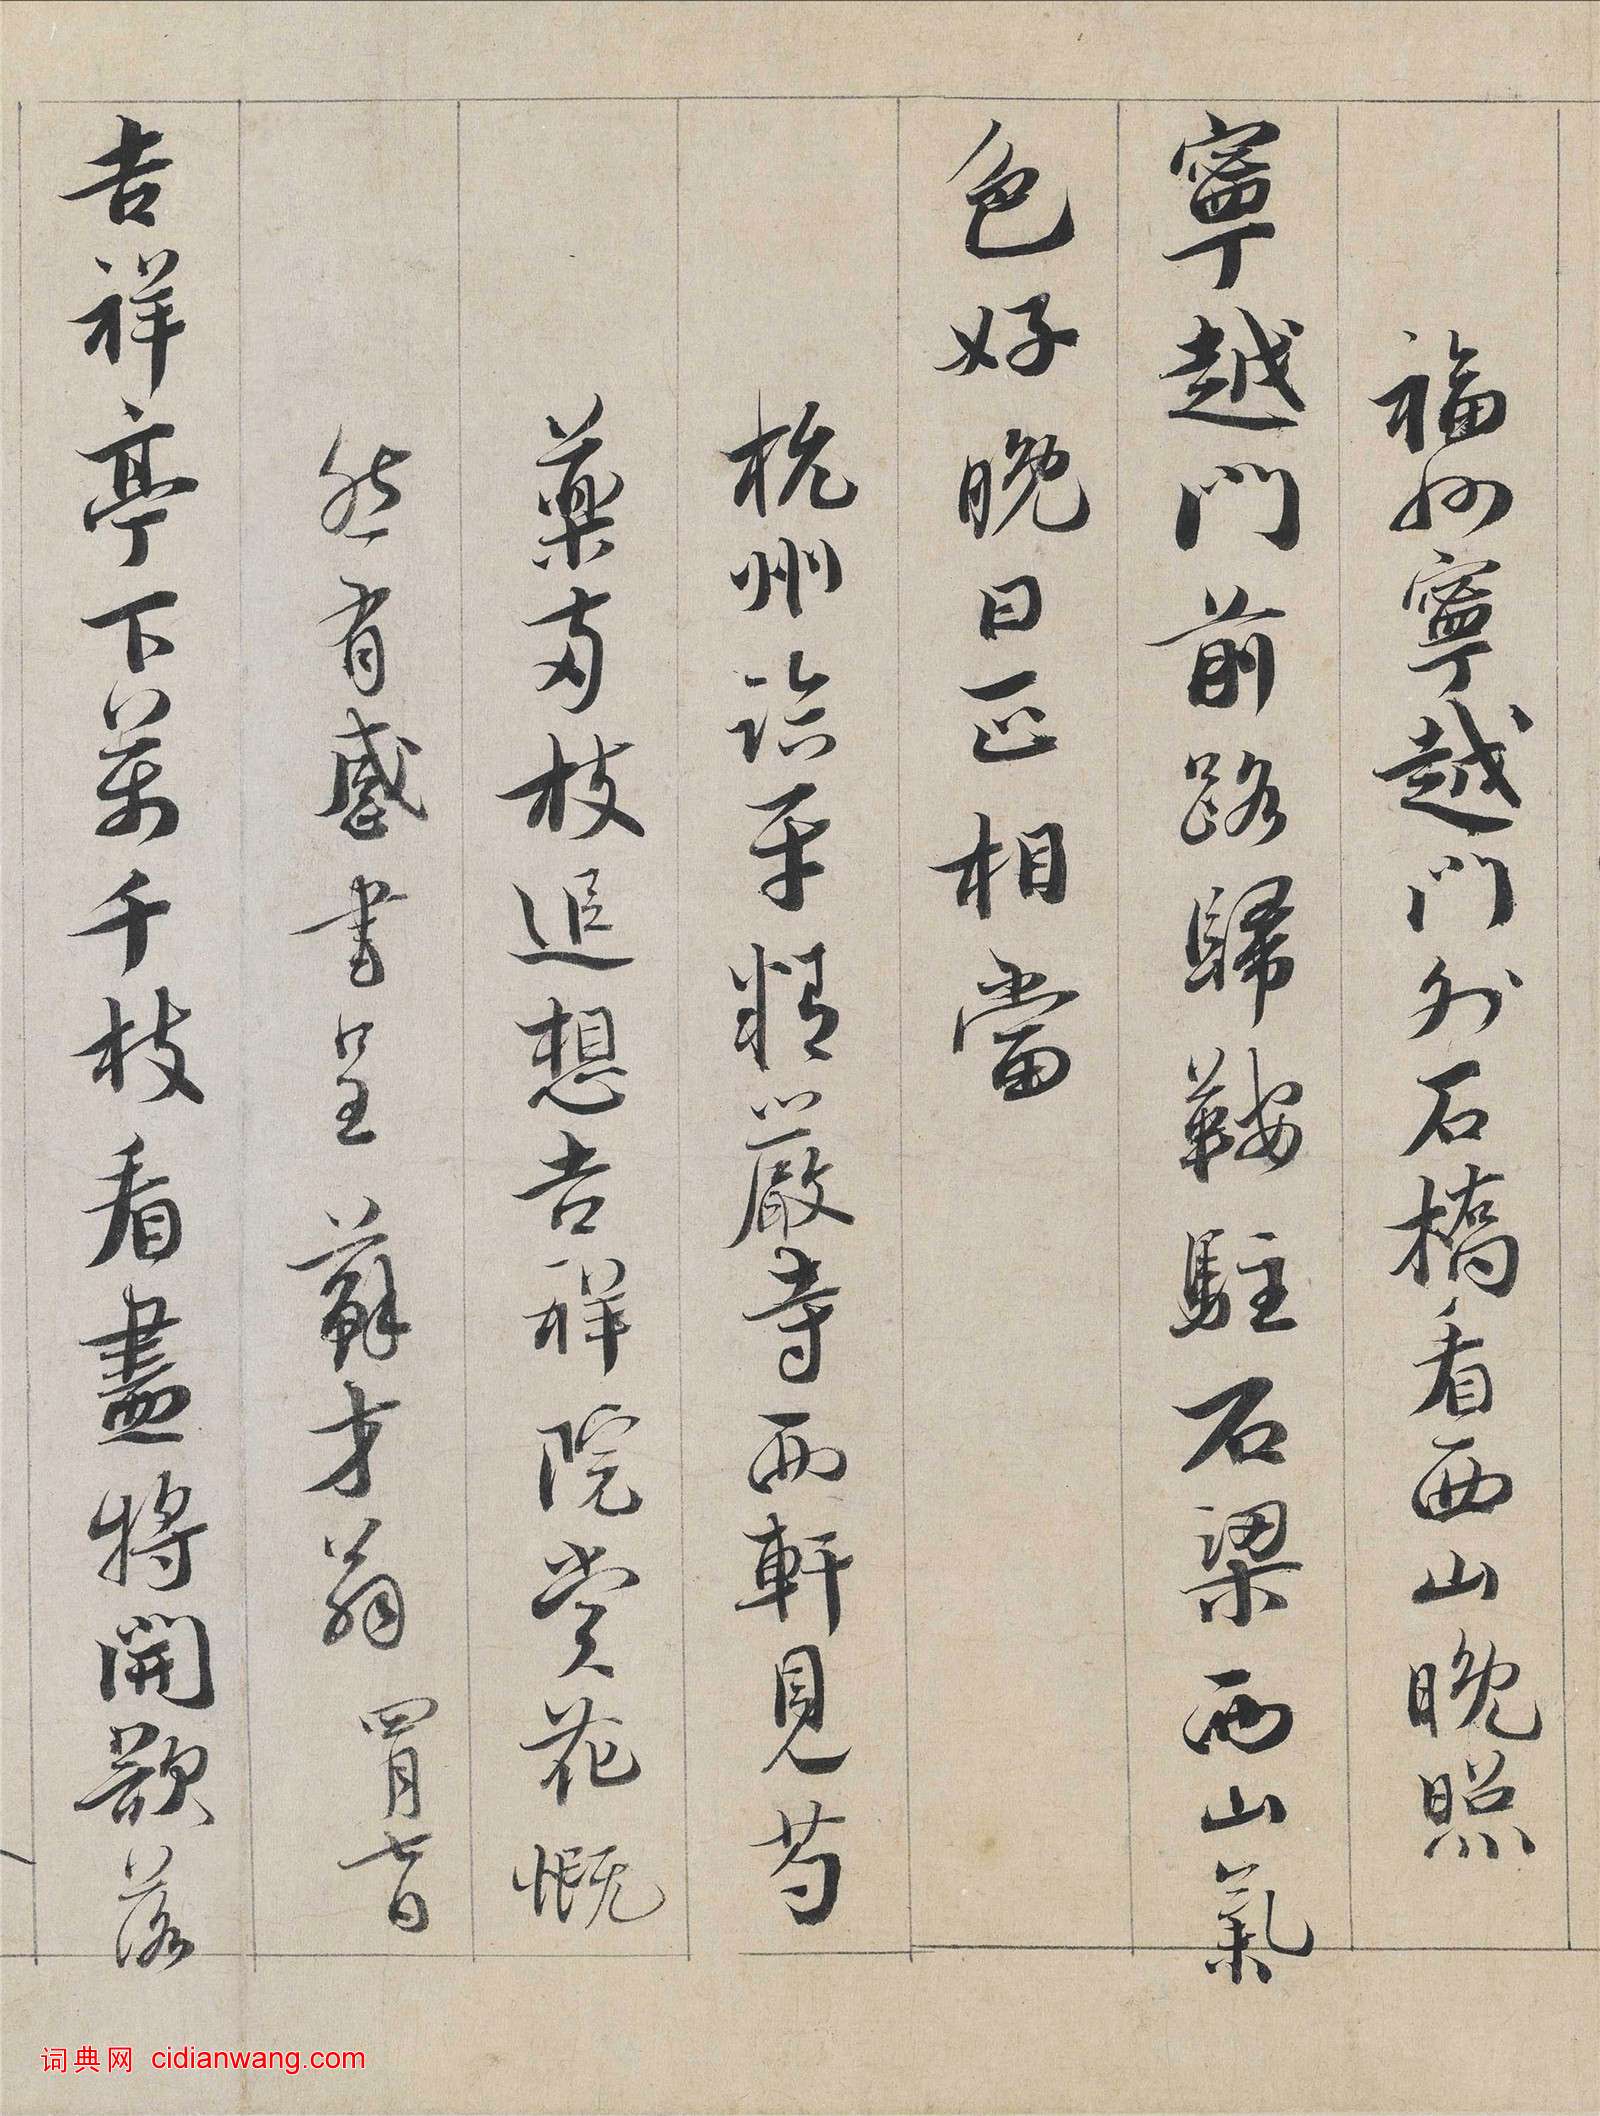 福州寧越門外石橋看西山晚照
寧越門前路歸鞍駐石梁西山氣
色好晚日正相當
杭州臨平精嚴寺西軒見芍
藥兩枝追想吉祥院賞花慨
然有感書呈蘇才翁四月七日
吉祥亭下萬千枝看盡將開欲落
词典网 cidianwang.com